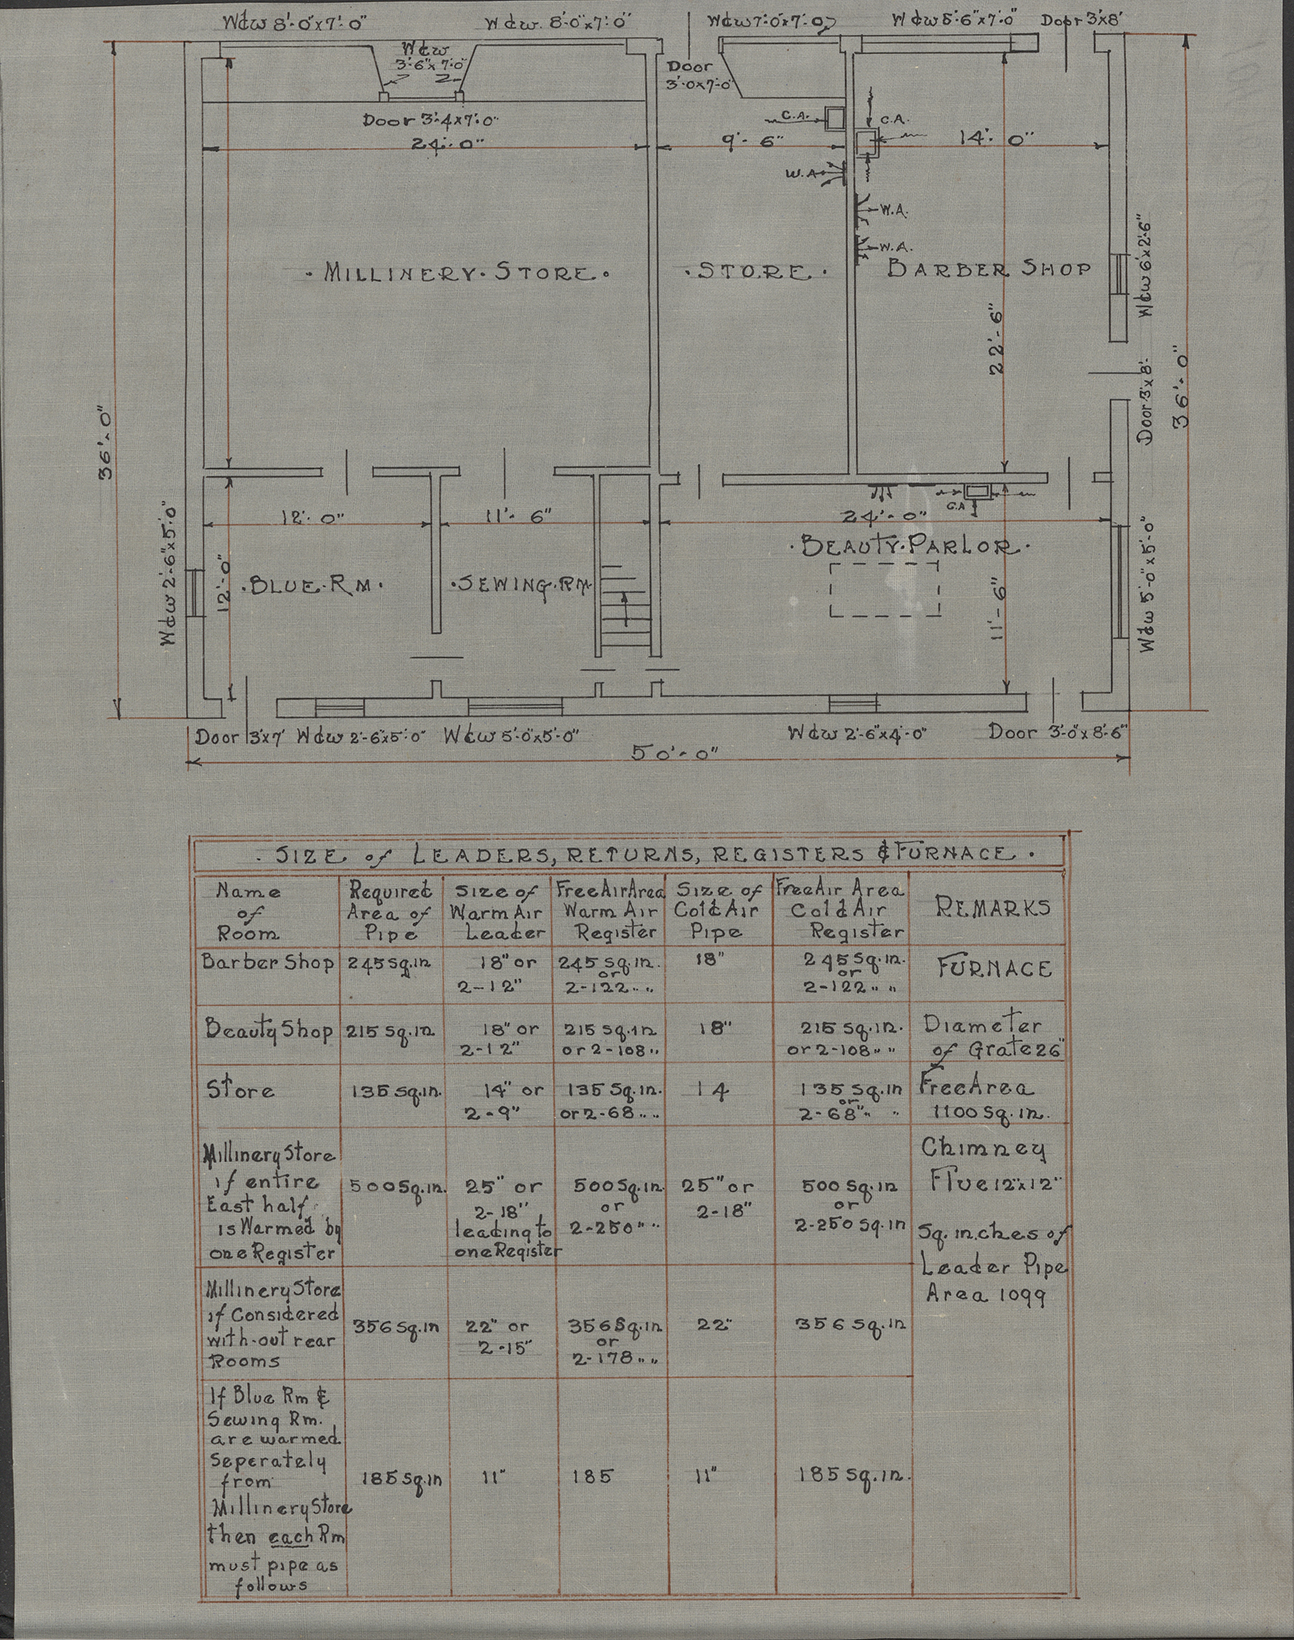 Wdw 8'-0"x7'-0"
Wdw. 8'-0"x7'-0"
Wdw 7'-0"x7'-0"
Wdw 5'-6"x7'-0"
Door 3'x8'
Wdw
3'-6"x7'-0"
Door
3'-0x7'-0"
Door 3'-4x7'-0"
24'-0"
9'-6"
14'-0"
C.A.
C.A.
W.A.
W.A.
W.A.
· MILLINERY · STORE ·
· STORE ·
BARBER SHOP
22'-6"
Wdw 6'x2'-6"
Door 3'x8'
36'-0"
36'-0"
12'-0"
11'-6"
24'-0"
C.A
· BEAUTY · PARLOR ·
Wdw 2'-6"x5'-0"
12'-0"
· BLUE · RM ·
· SEWING · RM
11'-6"
Wdw 5'-0"x5'-0"
Door 3'x7'
Wdw 2'-6"x5'-0"
Wdw 5'-0"x5'-0"
Wdw 2'-6"x4'-0"
Door 3'-0"x8'-6"
50'-0"
· SIZE of LEADERS, RETURNS, REGISTERS & FURNACE ·
Name
of
Room
Required
Area of
Pipe
Size of
Warm Air
Leader
Free Air Area
Warm Air
Register
Size of
Cold Air
Pipe
Free Air Area
Cold Air
Register
REMARKS
Barber Shop
245 Sq.in
18" or
2-12"
245 Sq.in.
or
2-122 " "
18"
245 Sq.in.
or
2-122 " "
FURNACE
Beauty Shop
215 Sq.in.
18" or
2-12"
215 Sq.in
or 2-108 "
18"
215 Sq.in.
or 2-108 " "
Diameter
of Grate 26"
Store
135 Sq.in.
14" or
2-9"
135 Sq.in.
or 2-68 " "
14
135 Sq.in
or
2-68" " "
Free Area
1100 Sq.in.
Millinery Store
if entire
East half
is Warmed by
one Register
500 Sq.in.
25" or
2-18"
leading to
one Register
500 Sq.in.
or
2-250 " "
25" or
2-18"
500 Sq.in
or
2-250 Sq.in
Chimney
Flue 12"x12"
Sq. inches of
Leader Pipe
Area 1099
Millinery Store
if Considered
with-out rear
Rooms
356 Sq.in
22" or
2-15"
356 Sq.in
or
2-178 " "
22"
356 Sq.in
If Blue Rm &
Sewing Rm.
are warmed
Seperately
from
Millinery Store
then each Rm
must pipe as
follows
185 Sq.in
11"
185
11"
185 Sq.in.